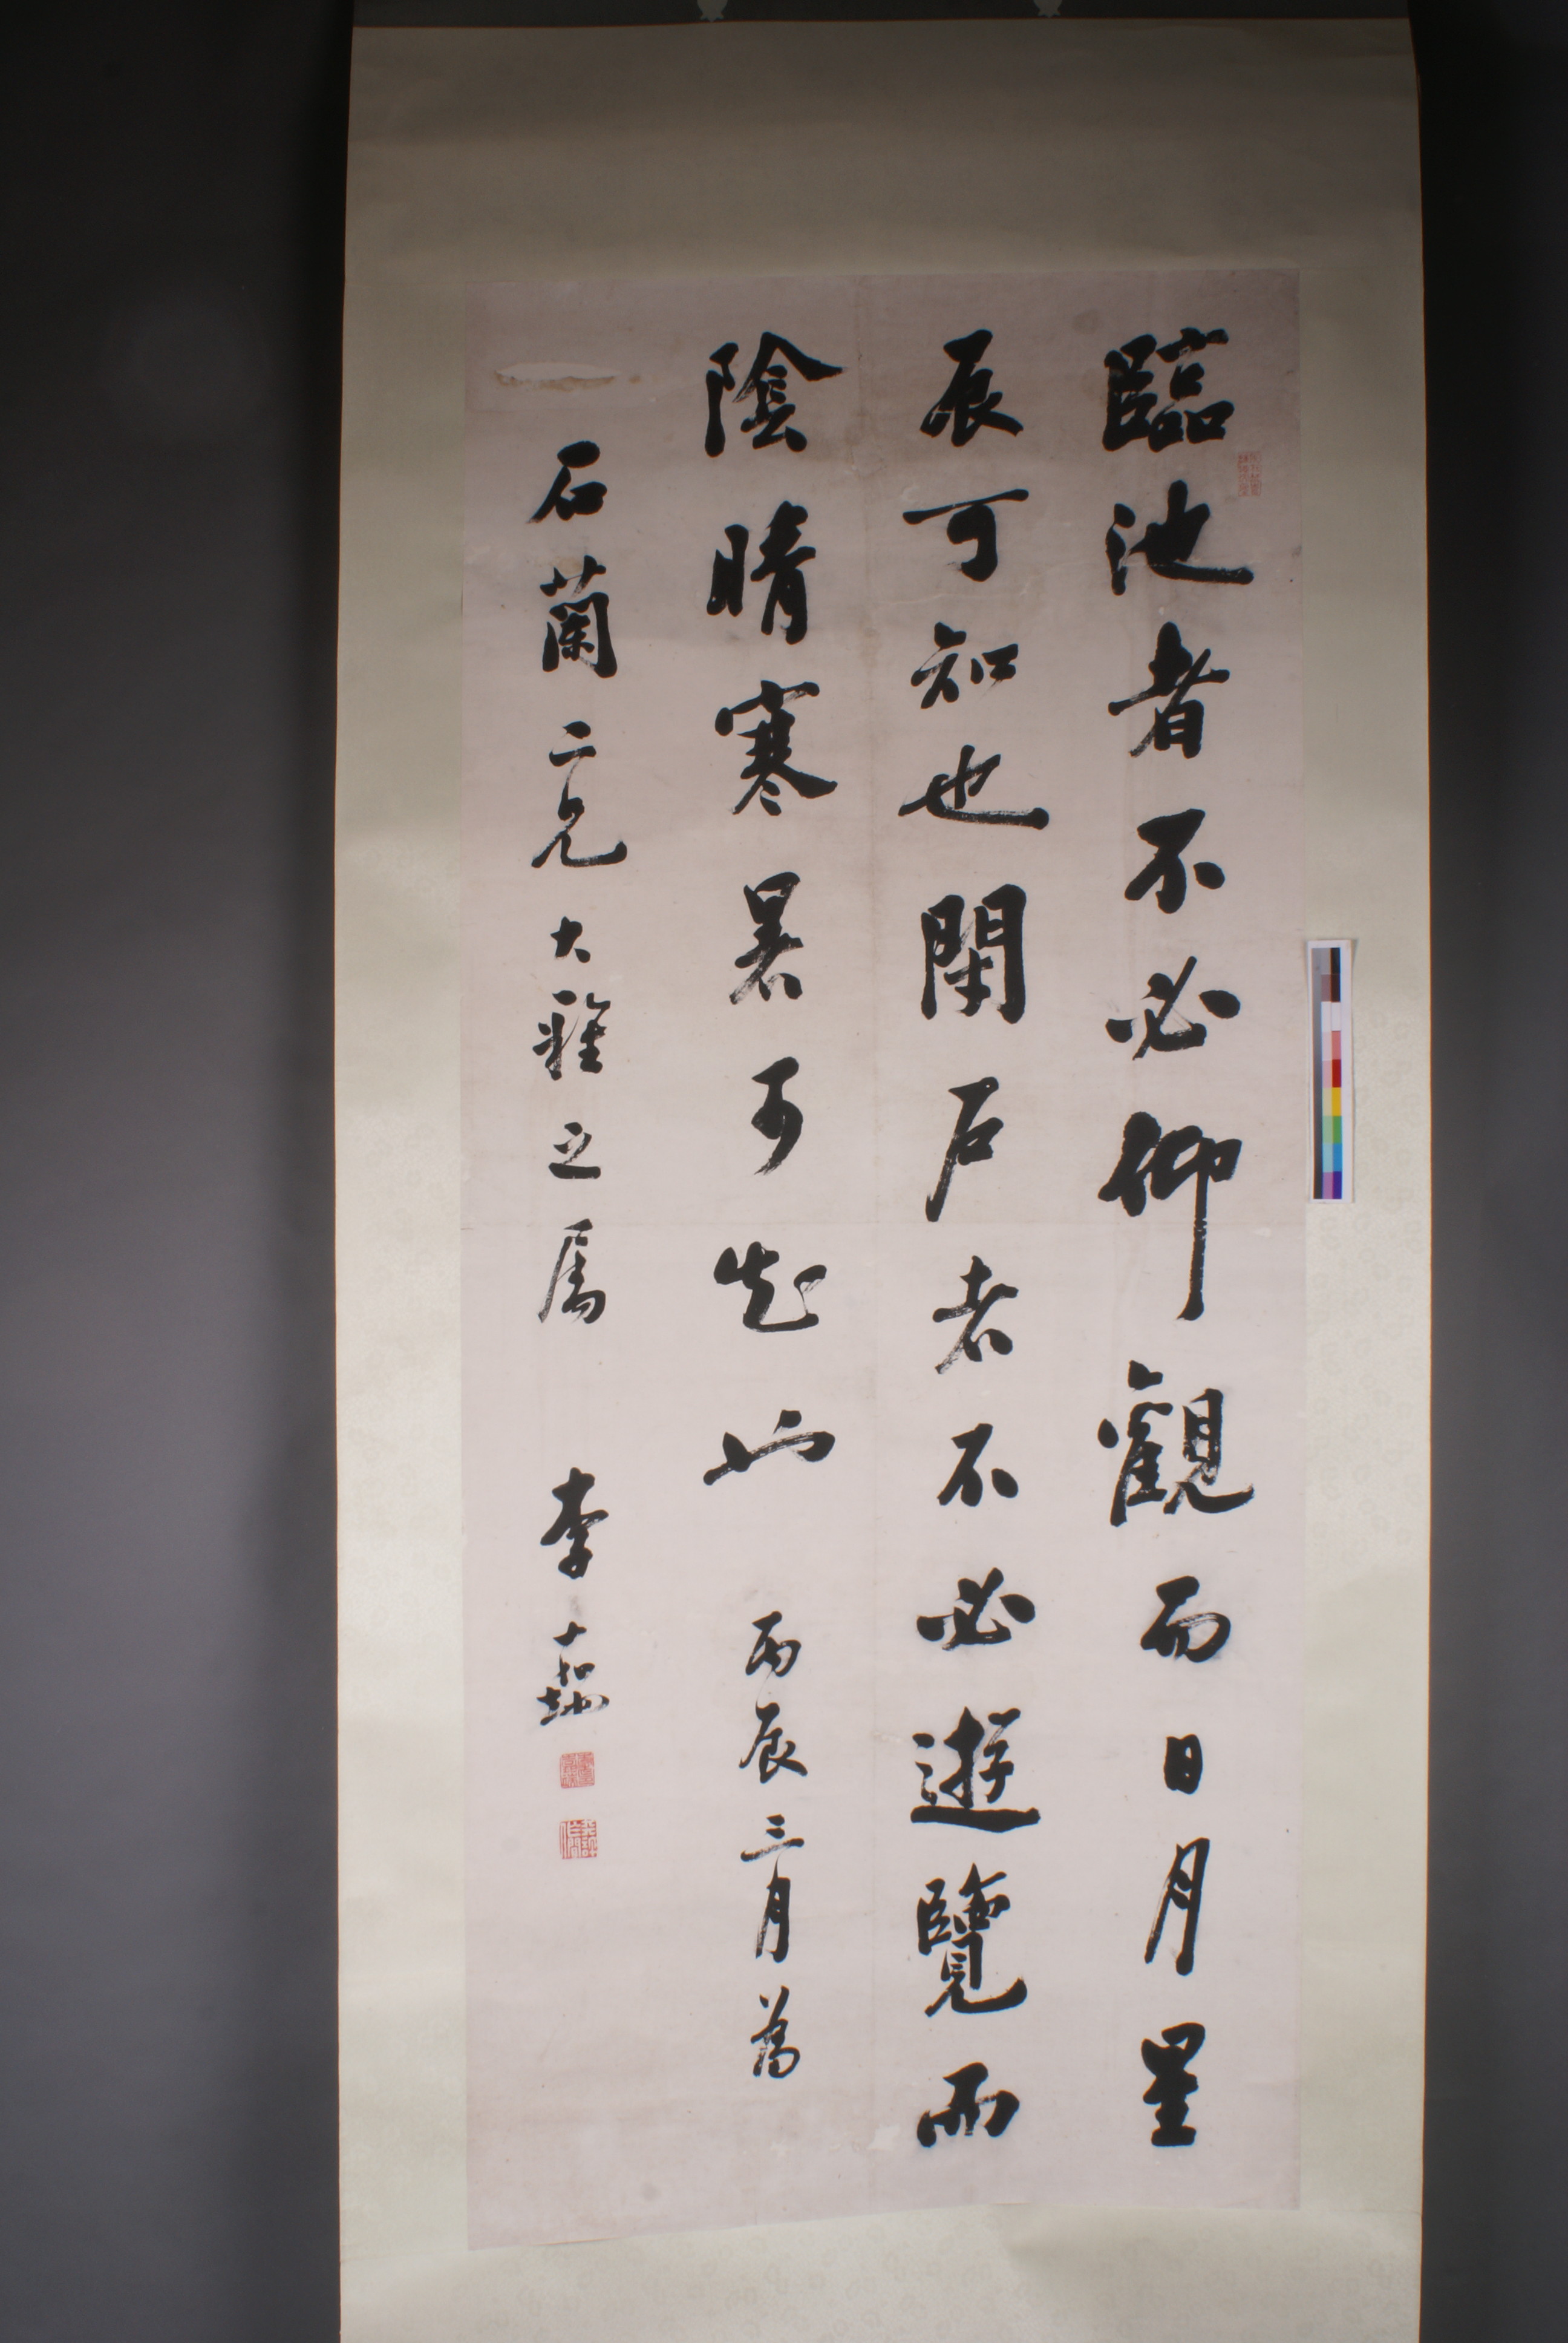 臨池者不必仰觀而日月星
辰可知也閉户者不必遊覽而
陰晴寒暑可知也丙辰三月為
石蘭二兄大雅之屬 李